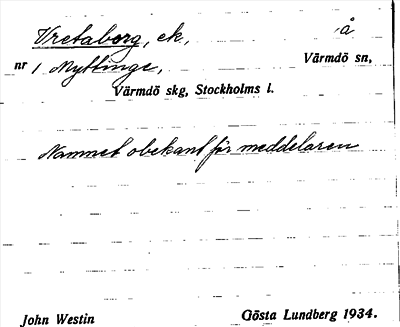 Vretaborg, ek, å
nr 1 Nyttinge, Värmdö sn,
Värmdö skg, Stockholms l.
Namnet obekant för meddelaren
John Westin Gösta Lundberg 1934.